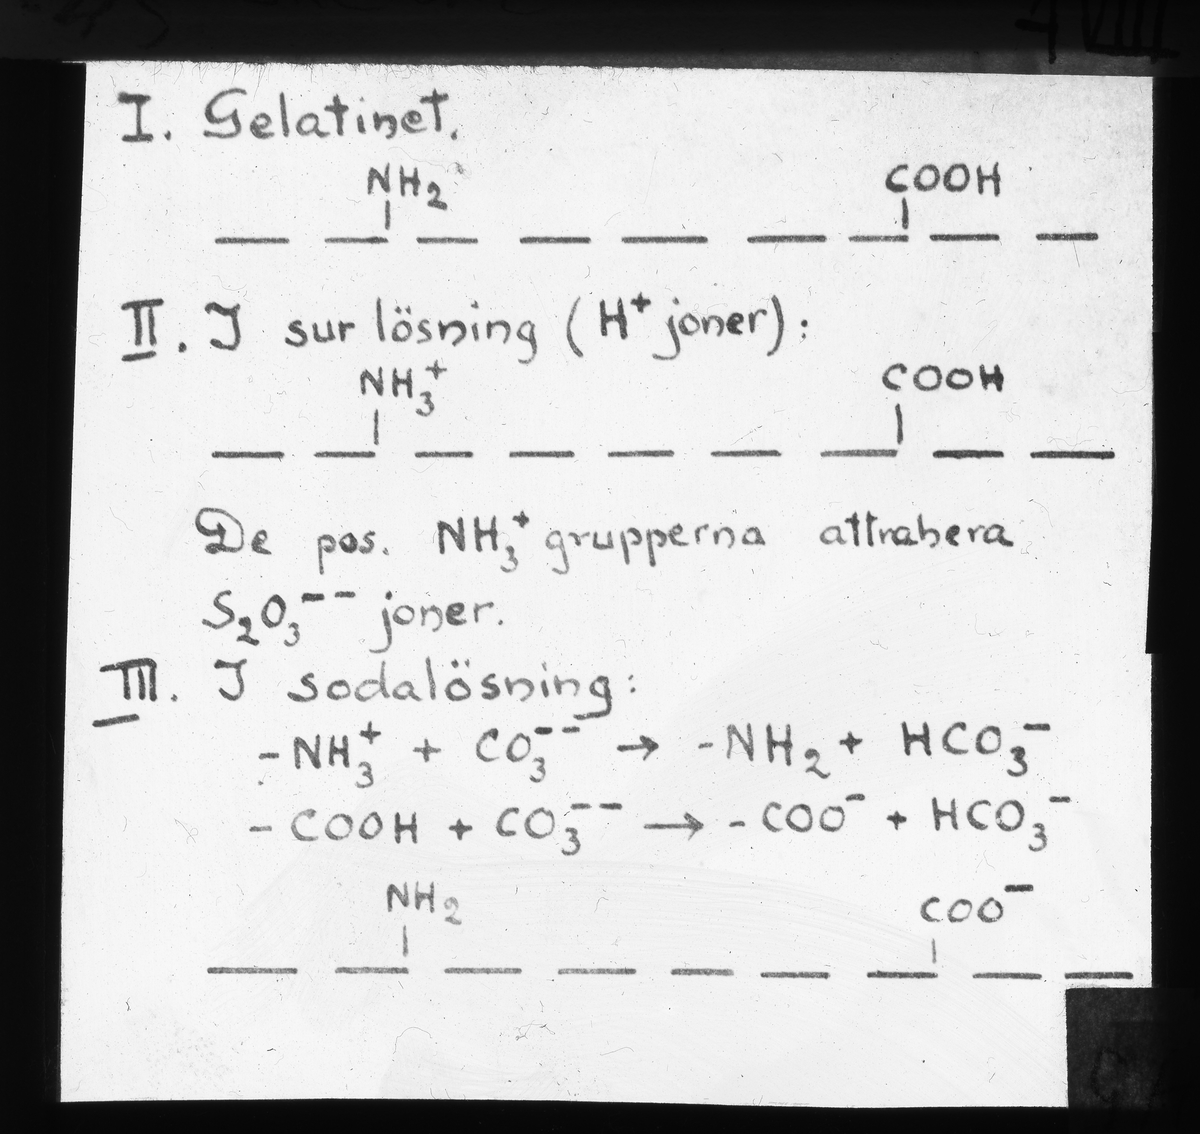 VIII
I. Gelatinet.
NH₂ COOH
II. I sur lösning (H⁺ joner):
NH₃⁺ COOH
De pos. NH₃⁺ grupperna attrahera
S₂O₃⁻⁻ joner.
III. I sodalösning:
-NH₃⁺ + CO₃⁻⁻ → -NH₂ + HCO₃⁻
-COOH + CO₃⁻⁻ → -COO⁻ + HCO₃⁻
NH₂ COO⁻